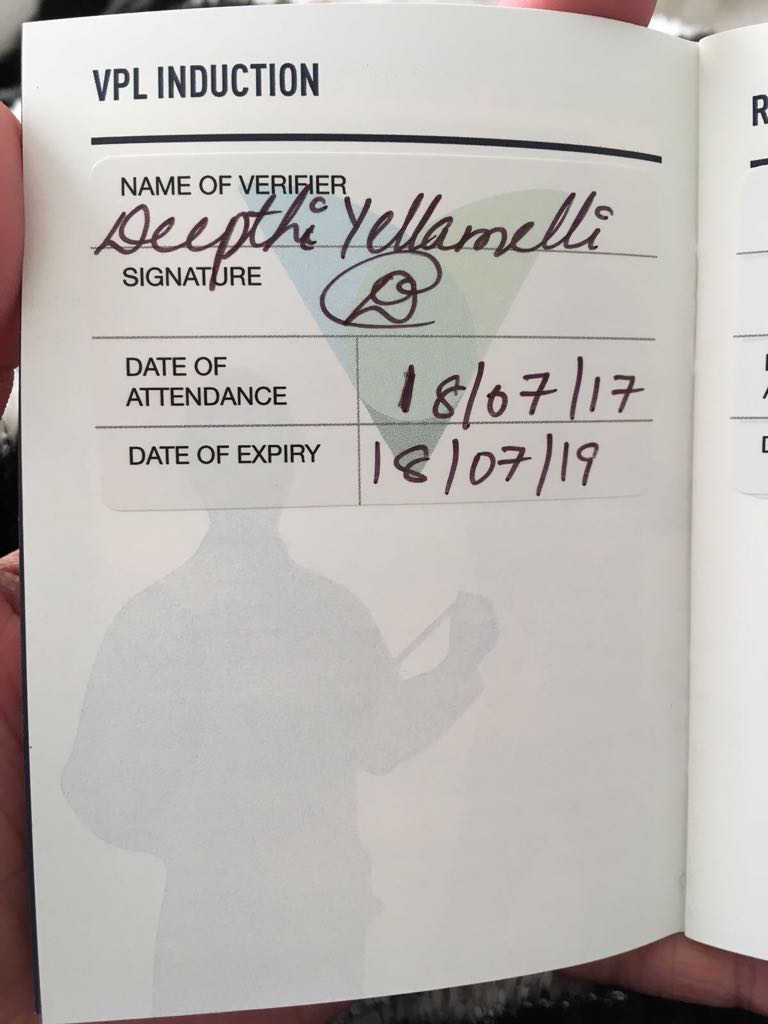 VPL INDUCTION
NAME OF VERIFIER
Deepthi Yellamelli
SIGNATURE
DATE OF
ATTENDANCE
18/07/17
DATE OF EXPIRY
18/07/19
R